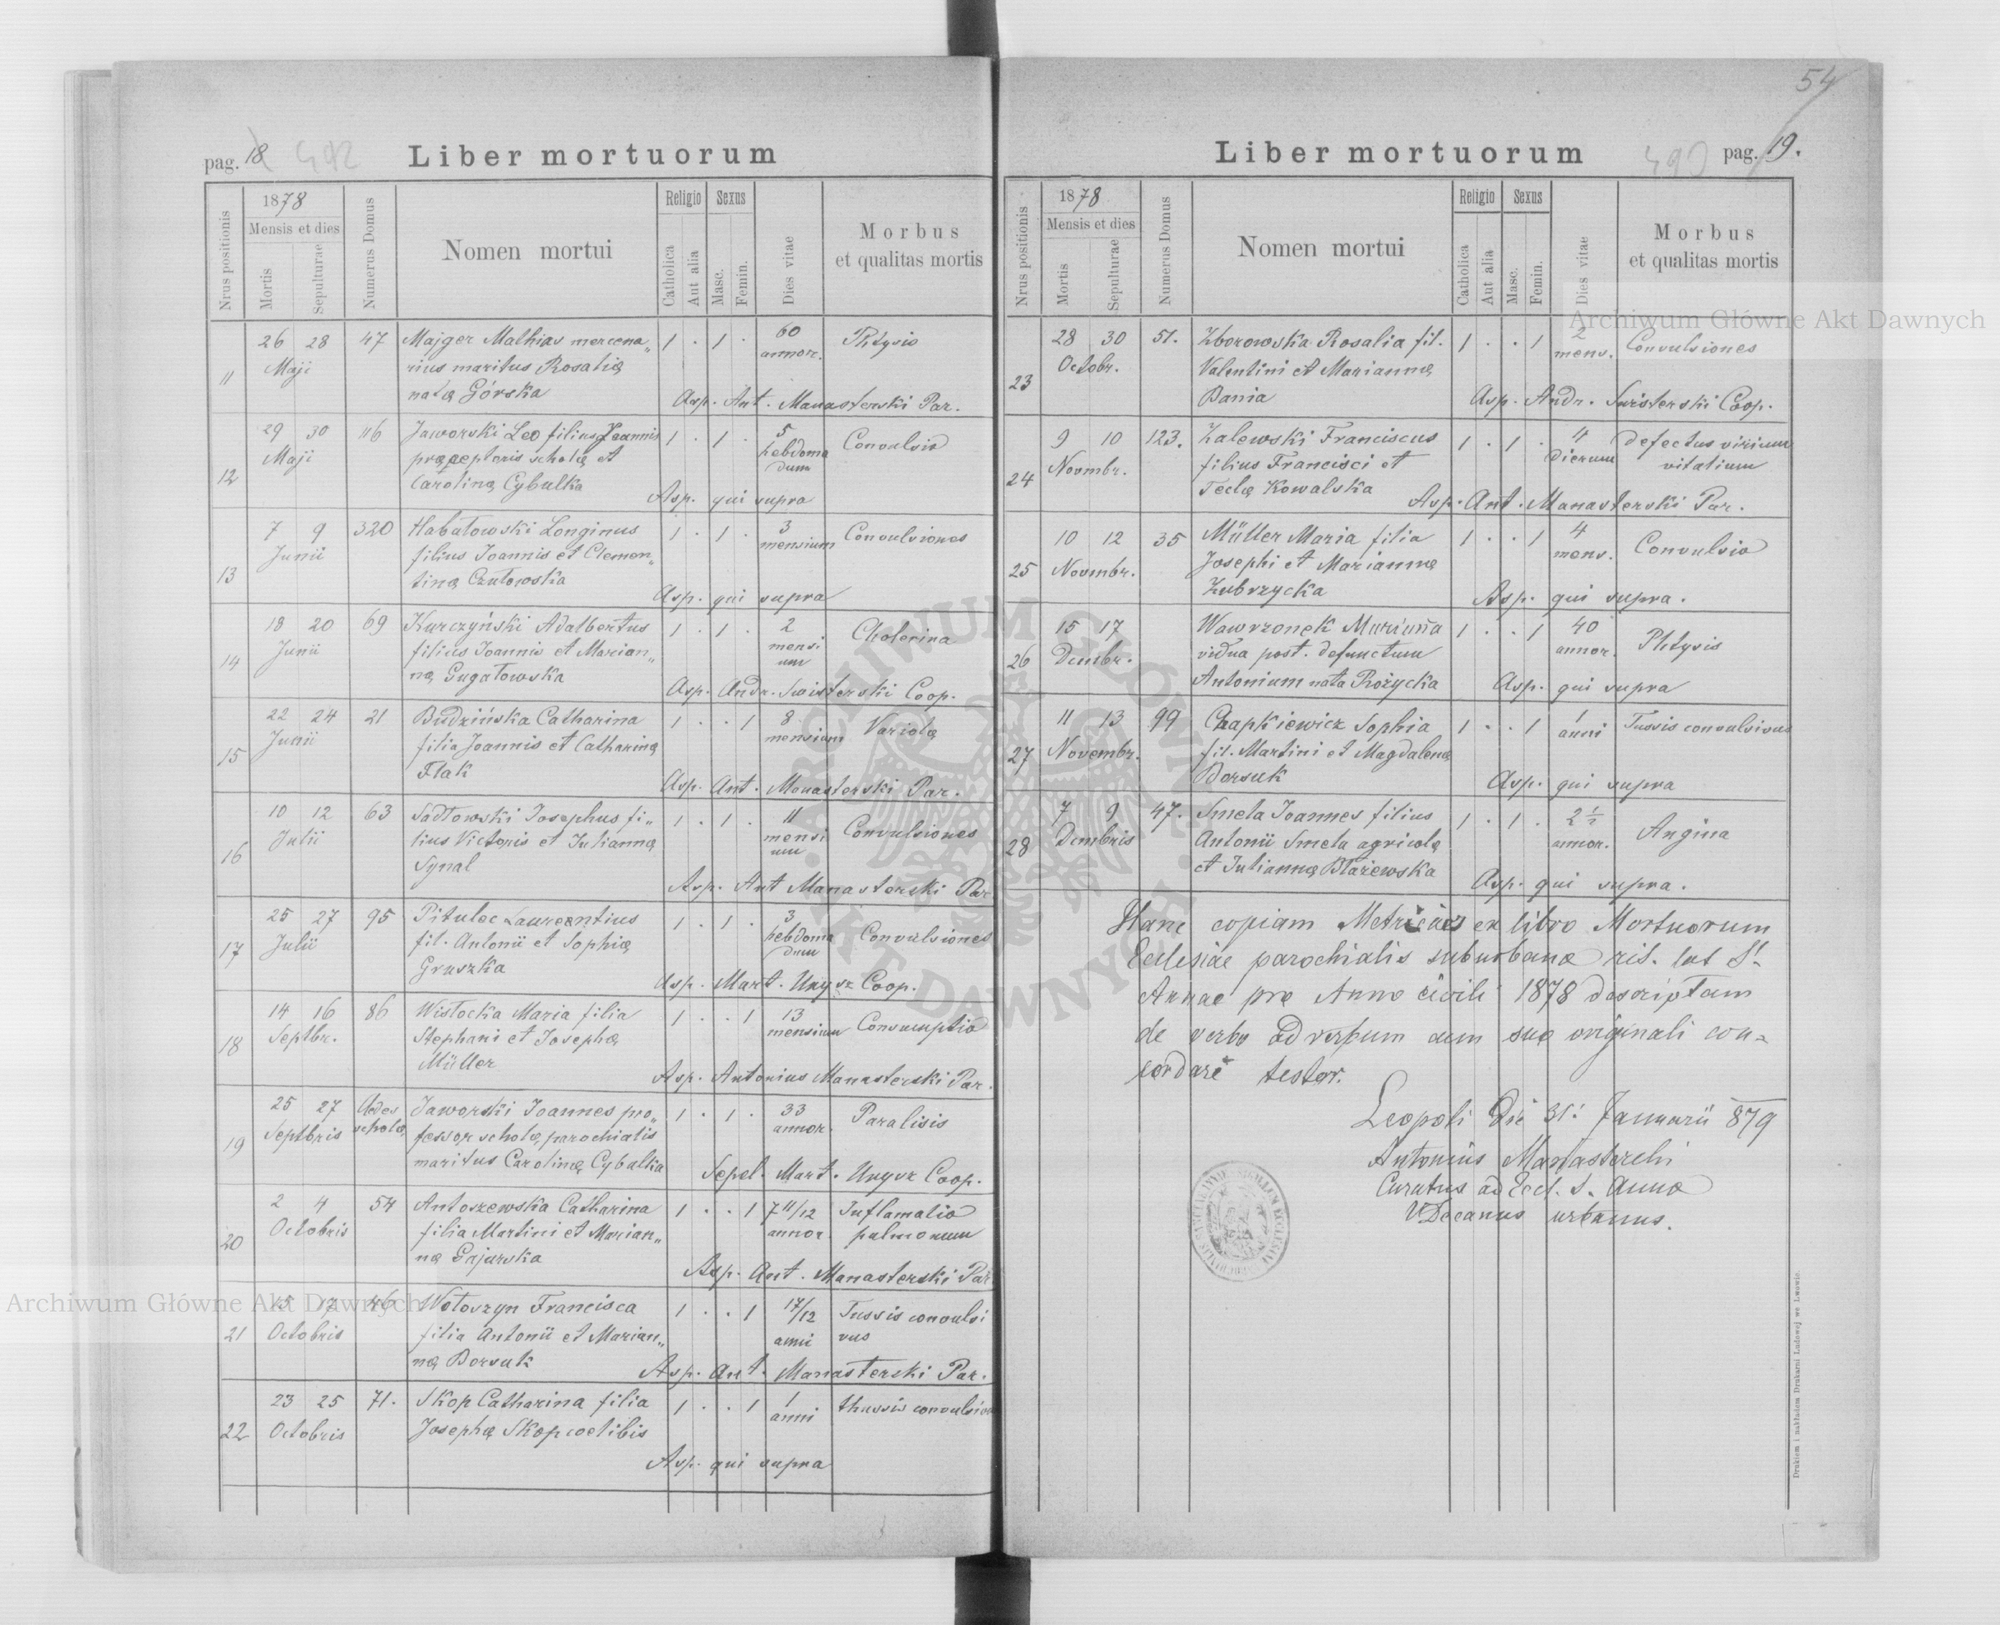 54
pag. 18
Liber mortuorum
Nrus positionis
1878
Mensis et dies
Mortis
Sepulturae
Numerus Domus
Nomen mortui
Religio
Catholica
Aut alia
Sexus
Masc.
Femin.
Dies vitae
Morbus
et qualitas mortis
11 26 28 47 Majger Mathias mercena„ 1 . 1 . 60 Phtysis
Maji rius maritus Rosaliæ annor.
natæ Górska Asp. Ant. Manasterski Par.
12 29 30 116 Jaworski Leo filius Joannis 1 . 1 . 5 Convulsio
Maji præceptoris scholæ et hebdoma
dum
Carolinæ Cybulka Asp. qui supra
13 7 9 320 Habatowski Longinus 1 . 1 . 3 Convulsiones
Junii filius Joannis et Clemen„ mensium
tinæ Asp. qui supra
14 18 20 69 Kurczyński Adalbertus 1 . 1 . 2 Cholerina
Junii filius Joannis et Marian„ mensi
um
næ Gugatowska Asp. Andr. Swisterski Coop.
15 22 24 21 Budzińska Catharina 1 . . 1 8 Variolæ
Junii filia Joannis et Catharinæ mensium
Flak Asp. Ant. Monasterski Par.
16 10 12 63 Sadtowski Josephus fi„ 1 . 1 . 11 Convulsiones
Julii lius Victoris et Juliannæ mensi
um
Synal Asp. Ant Manasterski Par
17 25 27 95 Pitulec Laurentius 1 . 1 . 3 Convulsiones
Julii fil. Antonii et Sophiæ hebdoma
dum
Gruszka Asp. Mart. Unysz Coop.
18 14 16 86 Wistocka Maria filia 1 . . 1 13 Consumptio
Septbr. Stephani et Josephæ mensium
Müller Asp. Antonius Manasterski Par.
19 25 27 Ædes Jaworski Joannes pro„ 1 . 1 . 33 Paralisis
Septbris scholæ fessor scholæ parochialis annor.
maritus Carolinæ Cybalka Sepel. Mart. Unysz Coop.
20 2 4 54 Antoszewska Catharina 1 . . 1 7 11/12 Inflamatio
Octobris filia Martini et Marian„ annor. pulmonum
næ Gajarska Asp. Ant. Manasterski Par
21 15 17 46 Wotoszyn Francisca 1 . . 1 17/12 Tussis convulsi
Octobris filia Antonii et Marian„ anni vus
næ Borsuk Asp. Ant. Manasterski Par.
22 23 25 71. Skop Catharina filia 1 . . 1 1 thussis convulsiva
Octobris Josephæ Skop coelibis anni
Asp. qui supra
Liber mortuorum
pag. 19.
Nrus positionis
1878
Mensis et dies
Mortis
Sepulturae
Numerus Domus
Nomen mortui
Religio
Catholica
Aut alia
Sexus
Masc.
Femin.
Dies vitae
Morbus
et qualitas mortis
23 28 30 51. Zborowska Rosalia fil. 1 . . 1 2 Convulsiones
Octobr. Valentini et Mariannæ mens.
Bania Asp. Andr. Swisterski Coop.
24 9 10 123. Zalewski Franciscus 1 . 1 . 4 defectus virium
Novmbr. filius Francisci et dierum vitalium
Teclæ Kowalska Asp. Ant. Manasterski Par.
25 10 12 35 Müller Maria filia 1 . . 1 4 Convulsio
Novmbr. Josephi et Mariannæ mens.
Zubrzycka Asp. qui supra.
26 15 17 Wawrzonek Marianna 1 . . 1 40 Phtysis
Dcmbr. vidua post. defunctum annor.
Antonium nata Rożycka Asp. qui supra
27 11 13 99 Czapkiewicz Sophia 1 . . 1 1 Tussis convulsivus
Novembr. fil. Martini et Magdalenæ anni
Borsuk Asp. qui supra
28 7 9 47. Smeta Joannes filius 1 . 1 . 2 1/2 Angina
Dcmbris Antonii Smeta agricolæ annor.
et Juliannæ Błażewska Asp. qui supra.
Hanc copiam Metricæ ex libro Mortuorum
Ecclesiae parochialis suburbanæ rit. lat St.
Annae pro Anno civili 1878 descriptam
de verbo ad verbum cum suo originali con-
cordare testor.
Leopoli die 31. Januarii 879
Antonius Manasterski
Curatus ad Eccl. S. Annæ
V Decanus urbanus.
Drukiem i nakładem Drukarni Ludowej we Lwowie.
Archiwum Główne Akt Dawnych
Archiwum Główne Akt Dawnych
ARCHIWUM GŁÓWNE AKT DAWNYCH